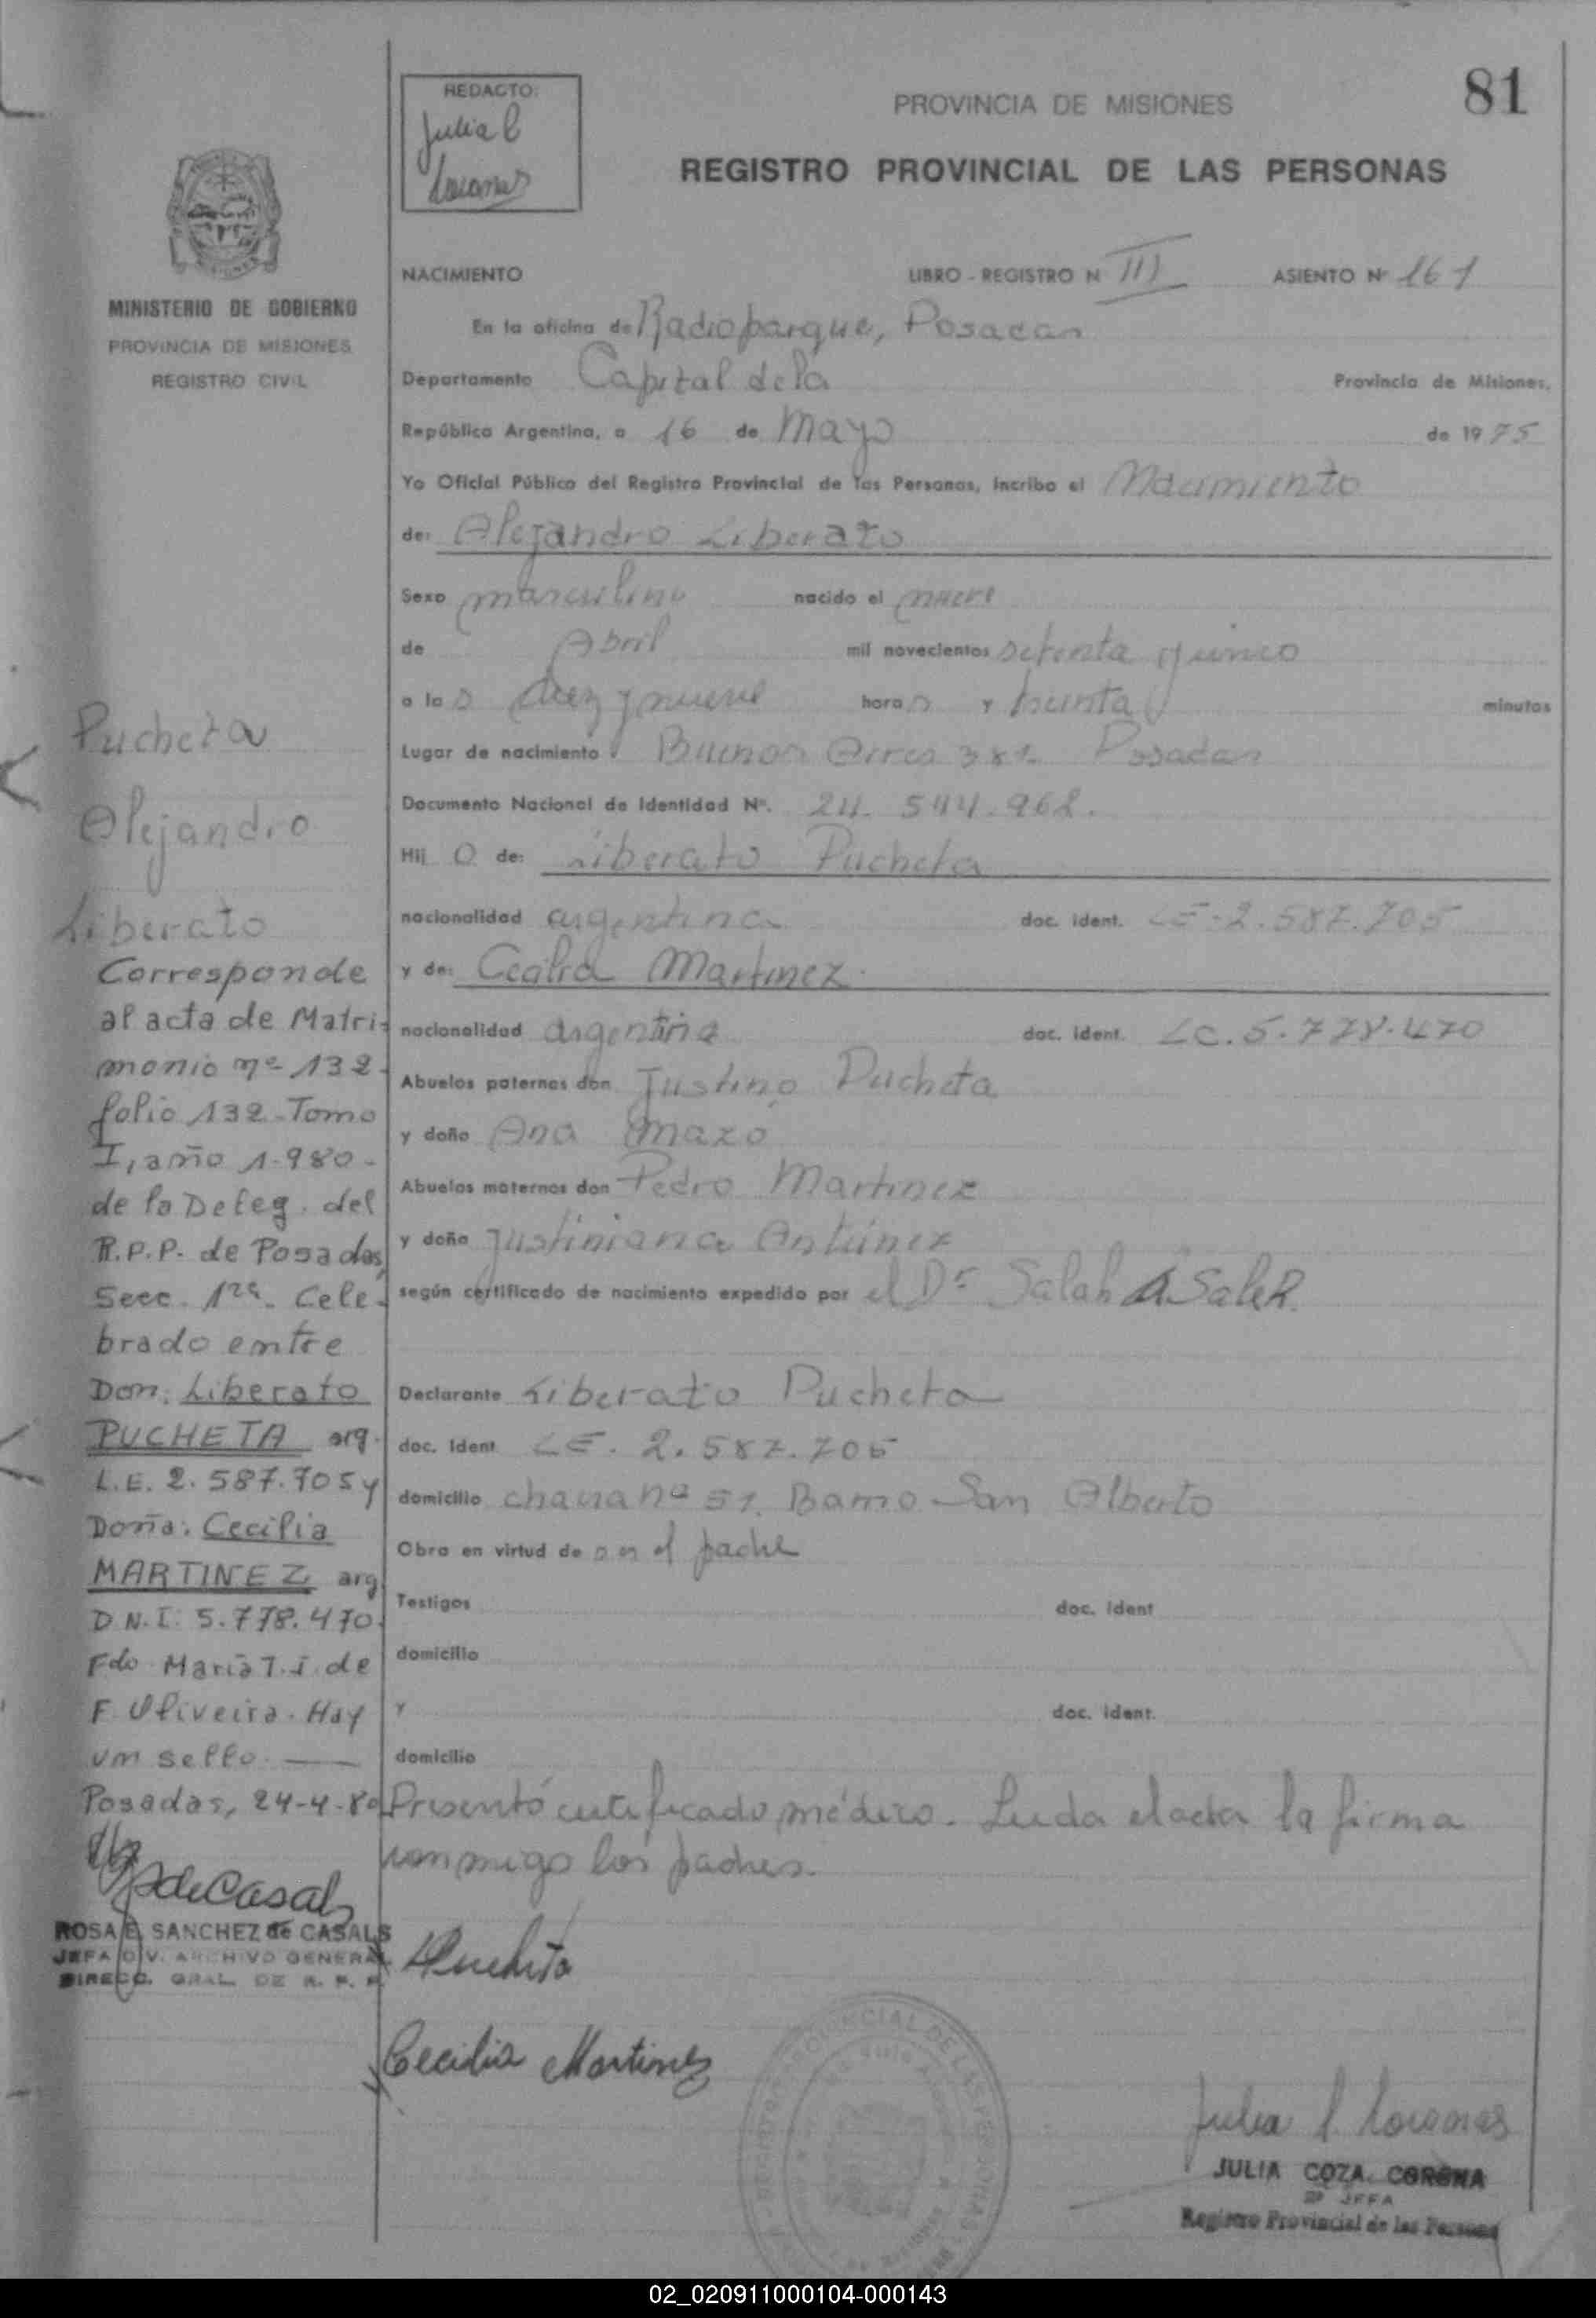 81
REDACTO:
Julia C
PROVINCIA DE MISIONES
REGISTRO PROVINCIAL DE LAS PERSONAS
MINISTERIO DE GOBIERNO
PROVINCIA DE MISIONES
REGISTRO CIVIL
NACIMIENTO LIBRO - REGISTRO N III ASIENTO Nº 161
En la oficina de Radioparque, Posadas
Departamento Capital de la Provincia de Misiones,
República Argentina, a 16 de Mayo de 1975
Yo Oficial Público del Registro Provincial de las Personas, incribo el Nacimiento
de: Alejandro Liberato
Sexo masculino nacido el nueve
de Abril mil novecientos setenta y cinco
a las diez y nueve horas y treinta minutos
Lugar de nacimiento Buenos Aires 381 Posadas
Documento Nacional de Identidad Nº. 24.544.962.
Hij o de: Liberato Pucheta
nacionalidad argentina doc. ident. LE-2.587.705
y de: Cecilia Martinez.
nacionalidad argentina doc. ident. LC.5.778.470
Abuelos paternos don Justino Pucheta
y doña Ana Mazó
Abuelos maternos don Pedro Martinez
y doña Justiniana Antúnez
según certificado de nacimiento expedido por el Dr Salah A Saleh.
Declarante Liberato Pucheta
doc. Ident LE. 2.587.705
domicilio chacra nº 51. Barrio San Alberto
Obra en virtud de ser el padre
Testigos doc. ident
domicilio
Y doc. ident.
domicilio
Presentó certificado médico. Leida el acta la firma
conmigo los padres.
Pucheta
Cecilia Martinez
Pucheta
Alejandro
Liberato
Corresponde
al acta de Matri-
monio nº 132-
folio 132-Tomo
I, año 1.980-
de la Deleg. del
R.P.P. de Posadas,
Secc. 1ra. Cele-
brado entre
Don: Liberato
PUCHETA arg.
L.E. 2.587.705 y
Doña: Cecilia
MARTINEZ arg
D.N.I. 5.778.470.
Fdo Maria T. i. de
F. Oliveira. Hay
un sello.
Posadas, 24-4-80
deCasals
ROSA E. SANCHEZ de CASALS
JEFA DIV. ARCHIVO GENERAL
DIRECC. GRAL DE R. P. P.
JULIA COZA CORONA
2ª JEFA
Registro Provincial de las Personas
02_020911000104-000143